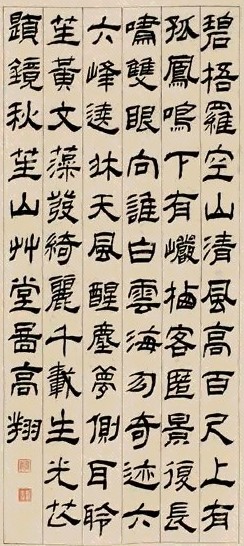 碧梧羅空山清風高百尺上有
孤鳳鳴下有巖栖客匿景復長
嘯雙眼向誰白雲海勿奇迹六
六峰逺天風醒塵夢側耳聆
笙黃文藻發綺麗千載生光芒
題鏡秋笙山艸堂啚高翔